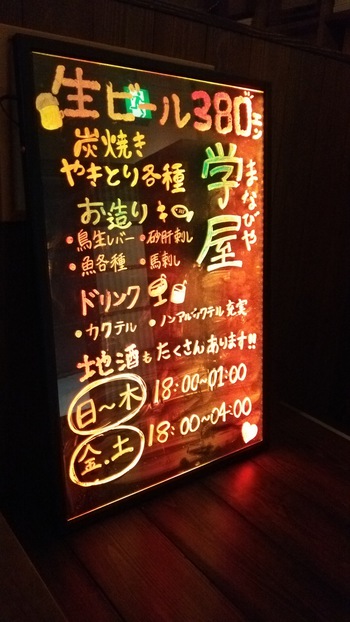 生ビール380エン
学屋
まなびや
炭焼き
やきとり各種
お造り
・鳥生レバー ・砂肝刺し
・魚各種 ・馬刺し
ドリンク
・カクテル ・ノンアルコックテル充実
地酒もたくさんあります!!
日〜木 18:00〜01:00
金.土 18:00〜04:00